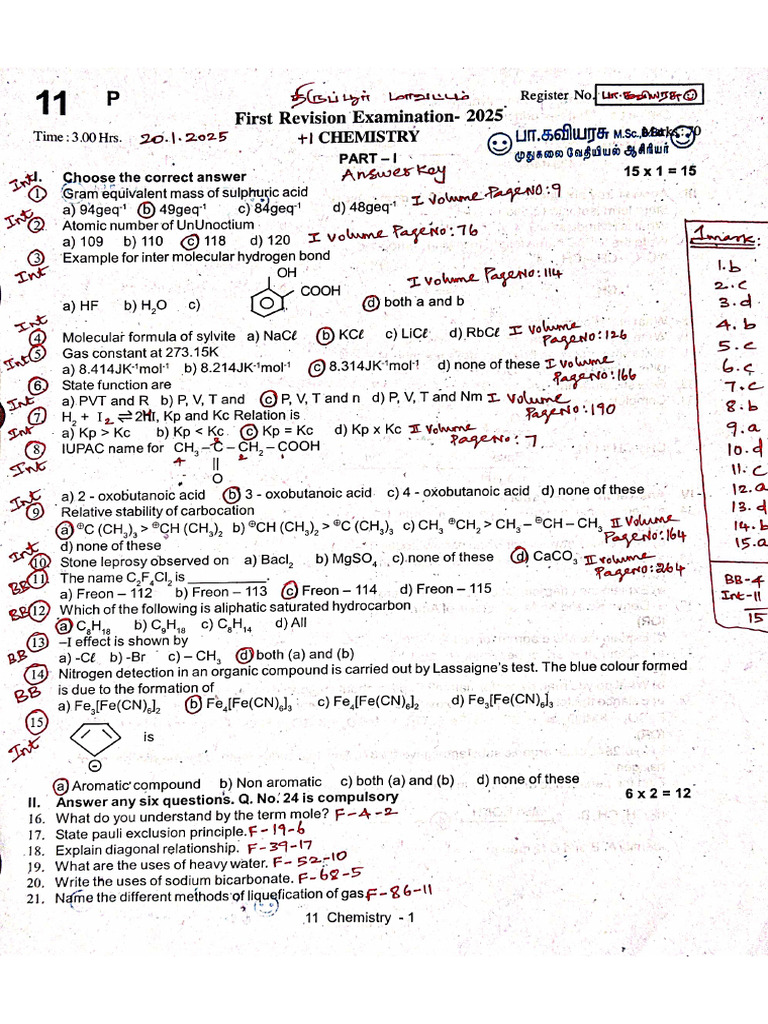 11 P
திருப்பூர் மாவட்டம்
Register No. பா.கவியரசு
First Revision Examination- 2025
Time : 3.00 Hrs. 20.1.2025 +1 CHEMISTRY
பா.கவியரசு M.Sc., B.Ed
முதுகலை வேதியியல் ஆசிரியர்
PART – I
Answer Key
15 x 1 = 15
Int I. Choose the correct answer
1 Gram equivalent mass of sulphuric acid
a) 94geq-1 b) 49geq-1 c) 84geq-1 d) 48geq-1 I Volume Page NO: 9
Int 2 Atomic number of UnUnoctium
a) 109 b) 110 c) 118 d) 120 I Volume Page No: 76
Int 3 Example for inter molecular hydrogen bond
OH
COOH
a) HF b) H2O c) d) both a and b I Volume Page No: 114
Int 4 Molecular formula of sylvite a) NaCℓ b) KCℓ c) LiCℓ d) RbCℓ I Volume Page No: 126
Int 5 Gas constant at 273.15K
a) 8.414JK-1mol-1 b) 8.214JK-1mol-1 c) 8.314JK-1mol-1 d) none of these I Volume Page No: 166
6 State function are
Int a) PVT and R b) P, V, T and c) P, V, T and n d) P, V, T and Nm I Volume Page No: 190
7 H2 + I2 ⇌ 2HI, Kp and Kc Relation is
Int a) Kp > Kc b) Kp < Kc c) Kp = Kc d) Kp x Kc II Volume Page No: 7
8 IUPAC name for CH3 – C – CH2 – COOH
4 || 2
O
Int a) 2 - oxobutanoic acid b) 3 - oxobutanoic acid c) 4 - oxobutanoic acid d) none of these
Int 9 Relative stability of carbocation
a) ⊕C (CH3)3 > ⊕CH (CH3)2 b) ⊕CH (CH3)2 > ⊕C (CH3)3 c) CH3 ⊕CH2 > CH3 – ⊕CH – CH3 II Volume Page No: 164
d) none of these
Int 10 Stone leprosy observed on a) Bacl2 b) MgSO4 c) none of these d) CaCO3 II Volume Page No: 264
BB 11 The name C2F4Cl2 is __________.
a) Freon – 112 b) Freon – 113 c) Freon – 114 d) Freon – 115
BB 12 Which of the following is aliphatic saturated hydrocarbon
a) C8H18 b) C9H18 c) C8H14 d) All
13 –I effect is shown by
BB a) -Cℓ b) -Br c) – CH3 d) both (a) and (b)
14 Nitrogen detection in an organic compound is carried out by Lassaigne's test. The blue colour formed
BB is due to the formation of
a) Fe3[Fe(CN)6]2 b) Fe4[Fe(CN)6]3 c) Fe4[Fe(CN)6]2 d) Fe3[Fe(CN)6]3
15 is
Int
a) Aromatic compound b) Non aromatic c) both (a) and (b) d) none of these
II. Answer any six questions. Q. No. 24 is compulsory 6 x 2 = 12
16. What do you understand by the term mole? F-4-2
17. State pauli exclusion principle. F-19-6
18. Explain diagonal relationship. F-39-17
19. What are the uses of heavy water. F-52-10
20. Write the uses of sodium bicarbonate. F-68-5
21. Name the different methods of liquefication of gas F-86-11
11 Chemistry - 1
1mark:
1. b
2. c
3. d
4. b
5. c
6. c
7. c
8. b
9. a
10. d
11. c
12. a
13. d
14. b
15. a
BB-4
Int-11
15